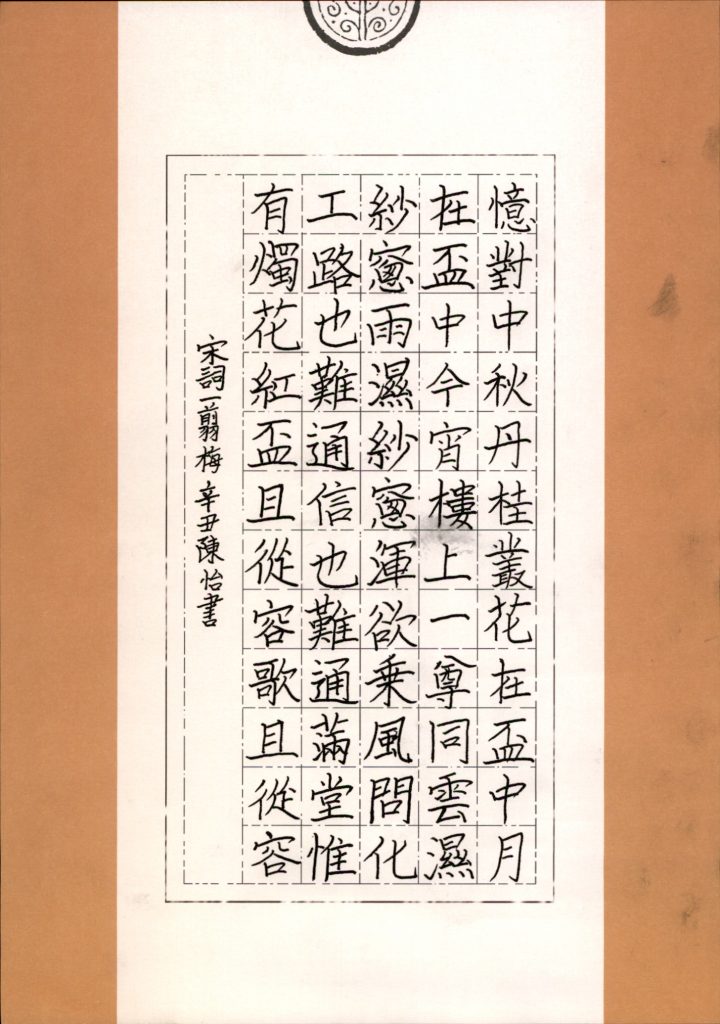 憶對中秋丹桂叢花在盃中月
在盃中今宵樓上一尊同雲濕
紗窻雨濕紗窻渾欲乗風問化
工路也難通信也難通滿堂惟
有燭花紅盃且從容歌且從容
宋詞一翦梅 辛丑陳怡書